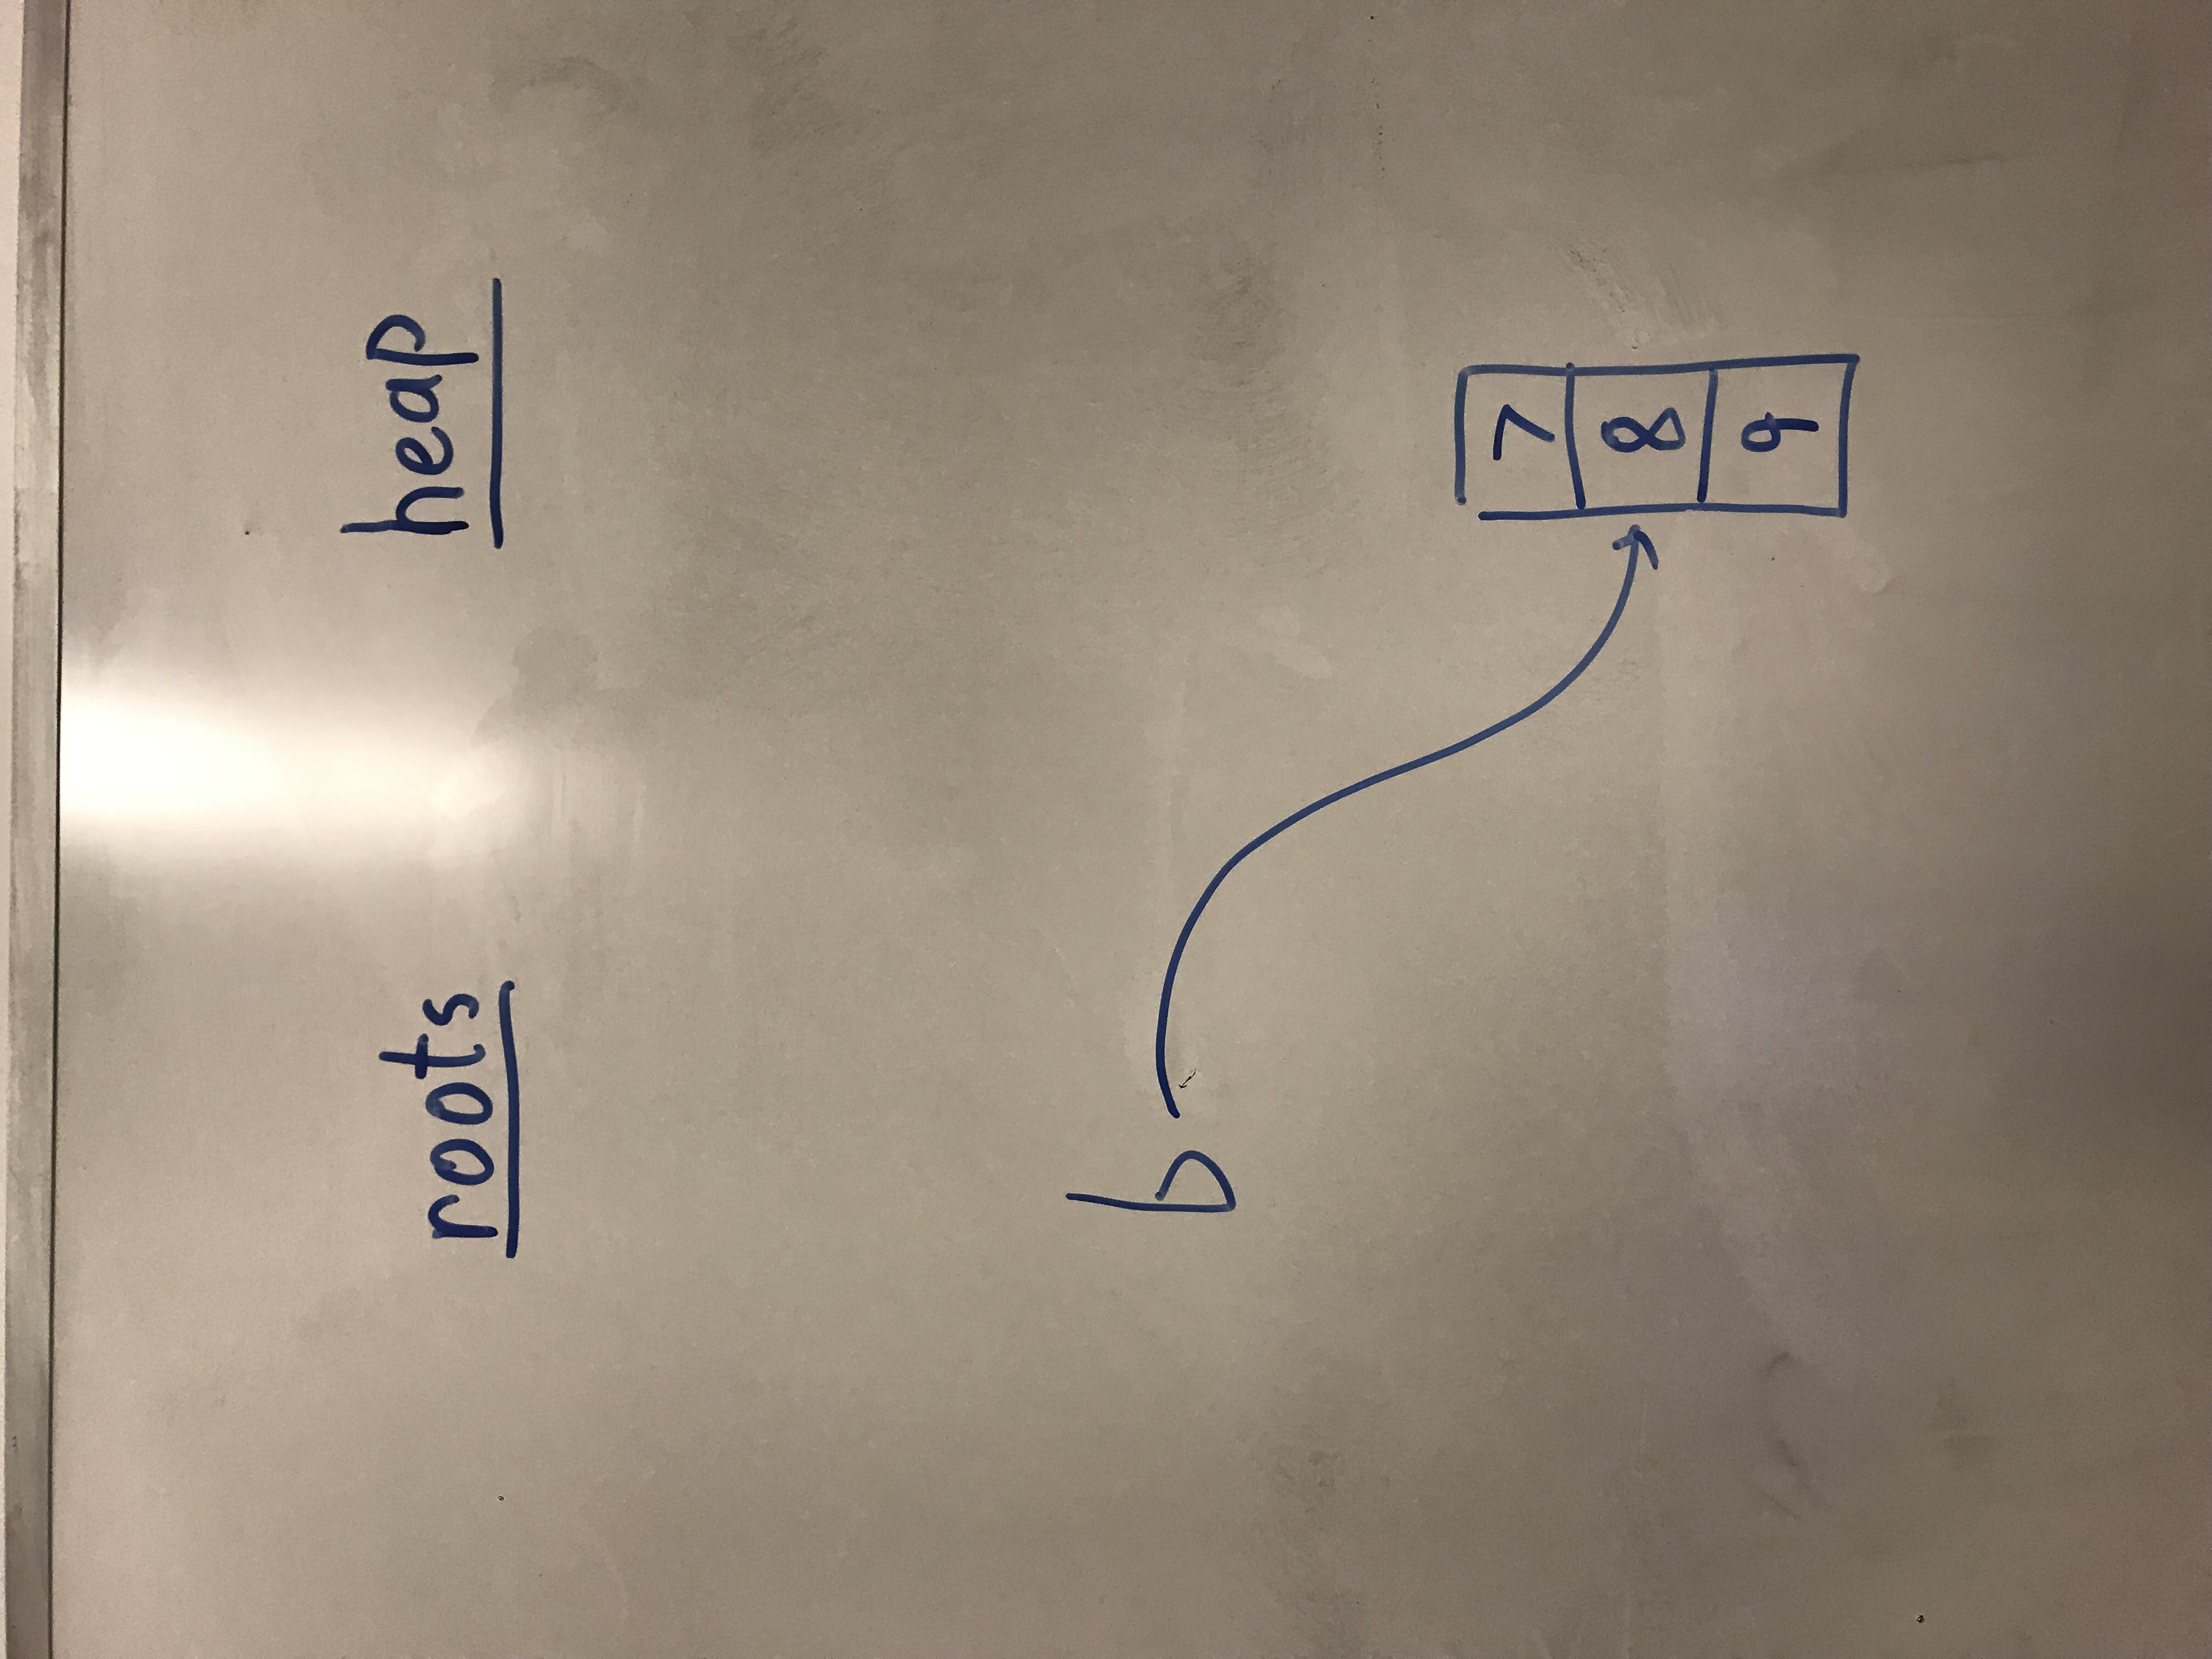 roots heap
b
7
8
9